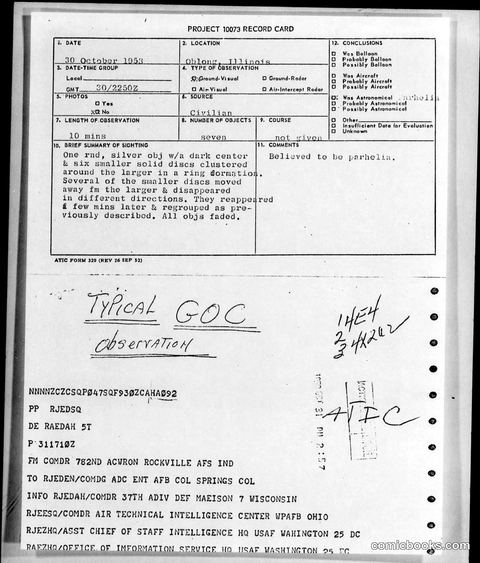 PROJECT 10073 RECORD CARD
1. DATE
30 October 1953
2. LOCATION
Oblong, Illinois
12. CONCLUSIONS
□ Was Balloon
□ Probably Balloon
□ Possibly Balloon
□ Was Aircraft
□ Probably Aircraft
□ Possibly Aircraft
Was Astronomical Parhelia
□ Probably Astronomical
□ Possibly Astronomical
□ Other
□ Insufficient Data for Evaluation
□ Unknown
3. DATE-TIME GROUP
Local
GMT 30/2250Z
4. TYPE OF OBSERVATION
Ground-Visual □ Ground-Radar
□ Air-Visual □ Air-Intercept Radar
5. PHOTOS
□ Yes
No
6. SOURCE
Civilian
7. LENGTH OF OBSERVATION
10 mins
8. NUMBER OF OBJECTS
seven
9. COURSE
not given
10. BRIEF SUMMARY OF SIGHTING
One rnd, silver obj w/a dark center
& six smaller solid discs clustered
around the larger in a ring formation.
Several of the smaller discs moved
away fm the larger & disappeared
in different directions. They reappeared
a few mins later & regrouped as pre-
viously described. All objs faded.
11. COMMENTS
Believed to be parhelia.
ATIC FORM 329 (REV 26 SEP 52)
TYPICAL GOC
Observation
14E4
2
3 4X2
ATIC
NNNNZCZCSQP047SQF930ZCAHA092
PP RJEDSQ
DE RAEDAH 5T
P 311710Z
FM COMDR 782ND ACWRON ROCKVILLE AFS IND
TO RJEDEN/COMDG ADC ENT AFB COL SPRINGS COL
INFO RJEDAH/COMDR 37TH ADIV DEF MAEISON 7 WISCONSIN
RJEESQ/COMDR AIR TECHNICAL INTELLIGENCE CENTER WPAFB OHIO
RJEZHQ/ASST CHIEF OF STAFF INTELLIGENCE HQ USAF WAHINGTON 25 DC
RAEZHQ/OFFICE OF IMFORMATION SERVICE HQ USAF WASHINGTON 25 EC
comicbooks.com